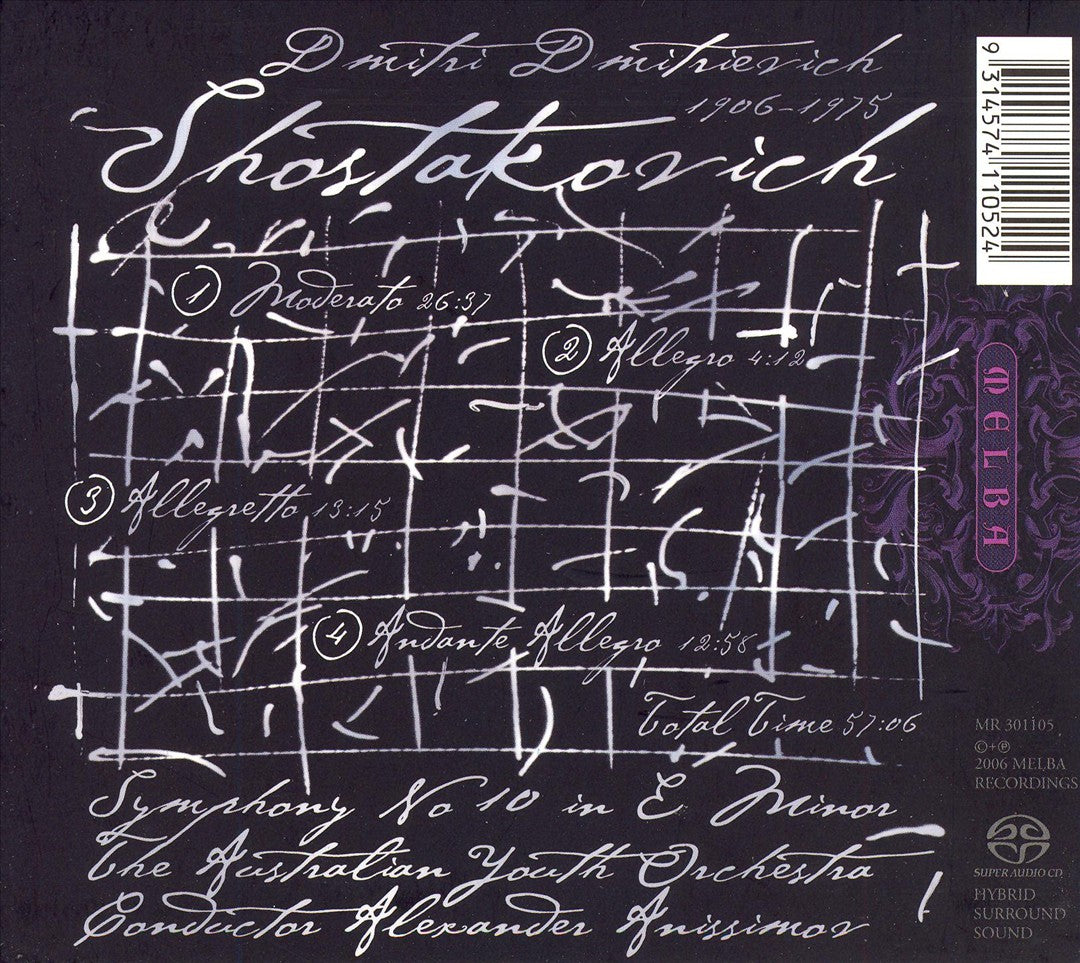 Dmitri Dmitrievich
1906-1975
Shostakovich
1 Moderato 26:37
2 Allegro 4:12
3 Allegretto 13:15
4 Andante, Allegro 12:58
Total Time 57:06
Symphony No 10 in E Minor
The Australian Youth Orchestra
Conductor Alexander Anissimov
9 314574 110524
MELBA
MR 301105
©+℗
2006 MELBA
RECORDINGS
SUPER AUDIO CD
HYBRID
SURROUND
SOUND